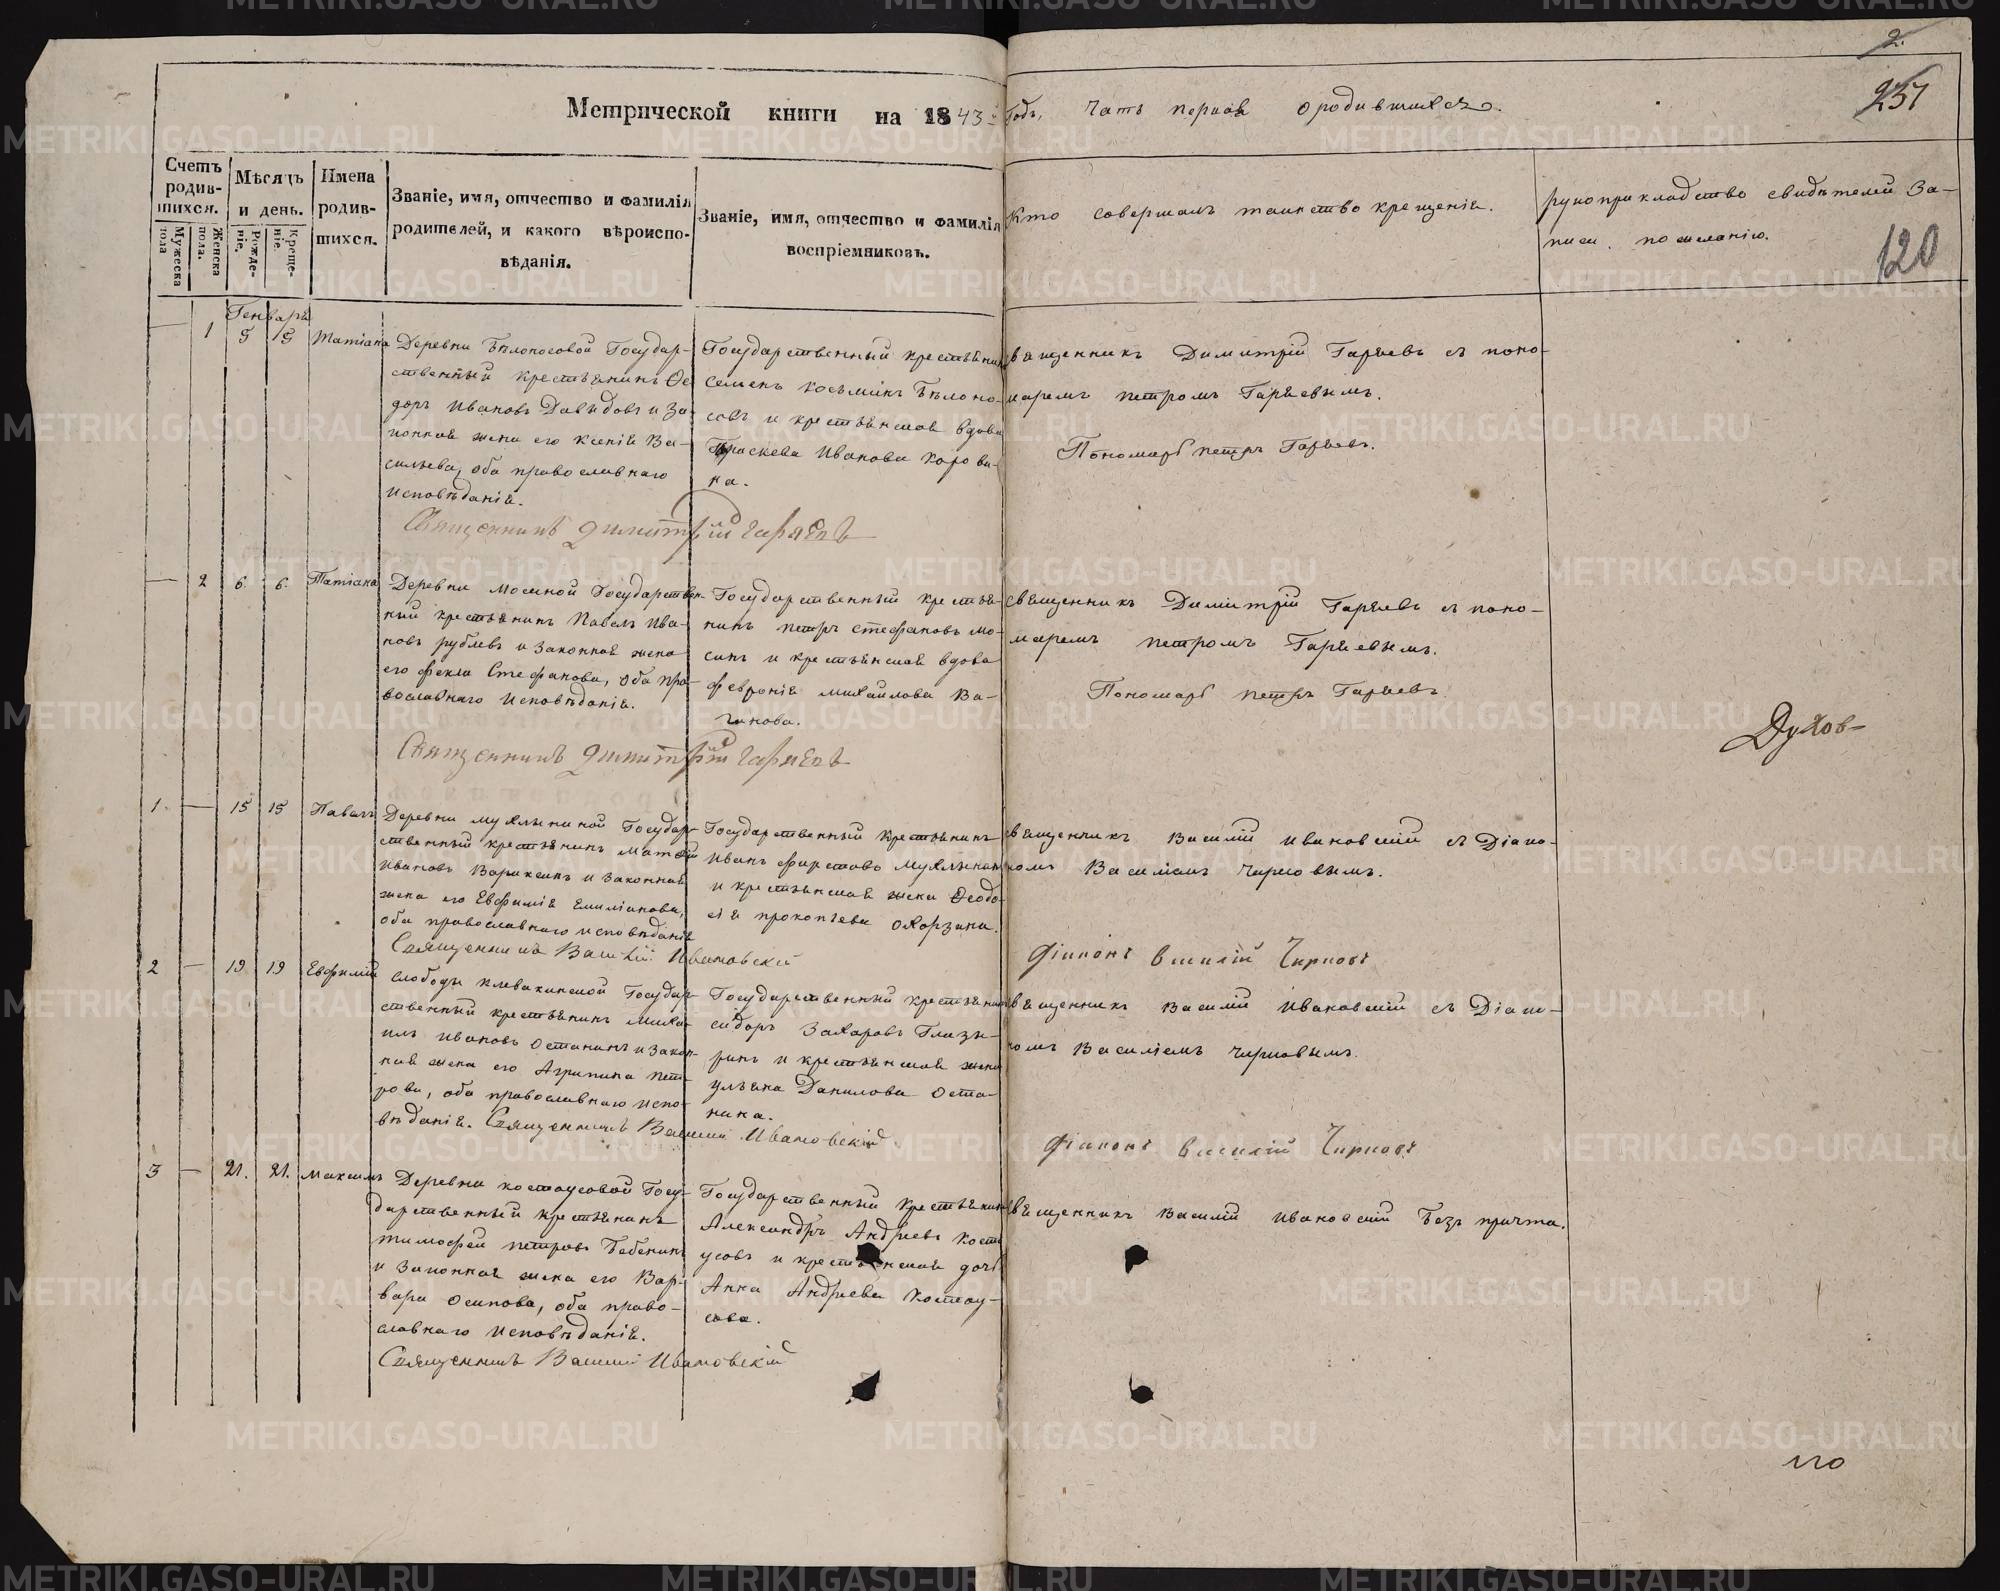 2.
237
Метрической книги на 1843й Годъ, Часть первая о родившихся.
120
Счетъ родив-шихся.
Мужеска пола
Женска пола.
Мѣсяцъ и день.
Рожде-ніе.
Креще-ніе.
Имена родив-шихся.
Званіе, имя, отчество и фамилія
родителей, и какого вѣроиспо-
вѣданія.
Званіе, имя, отчество и фамилія
воспріемниковъ.
Кто совершалъ таинство крещенія.
рукоприкладство свидѣтелей за-
писи по желанію.
Генваря
— 1 5 15 Татіана
Деревни Бѣлоносовой Государ-
ственный крестьянинъ Ѳе
доръ Ивановъ Давыдовъ и за
конная жена его Ксенія Ва-
сильева, оба православнаго
исповѣданія.
Государственный крестьянин
Семенъ Косьминъ Бѣлоно-
совъ и крестьянская вдова
Праскева Иванова Корови-
на.
Священникъ Димитрій Гаряевъ съ поно-
маремъ Петромъ Гаряевымъ.
Пономарь Петръ Гаряевъ.
Священникъ Димитрій Гаряевъ
— 2 6. 6. Татіана
Деревни Мосиной Государствен-
ный крестьянинъ Павелъ Ива-
новъ Рублевъ и законная жена
его Фекла Стефанова, оба пра-
вославнаго исповѣданія.
Государственный крестья-
нинъ Петръ Стефановъ Мо-
синъ и крестьянская вдова
Февронія Михайлова Ва-
гинова.
Священникъ Димитрій Гаряевъ съ поно-
маремъ Петромъ Гаряевымъ.
Пономарь Петръ Гаряевъ.
Духов-
Священникъ Димитрій Гаряевъ
1 — 15 15 Павелъ
Деревни Мухлыниной Государ-
ственный крестьянинъ Матѳей
Ивановъ Вараксинъ и законная
жена его Евфимія Емиліанова,
оба православнаго исповѣданія
Государственный крестьянинъ
Иванъ Фирстовъ Мухлынин
и крестьянская жена Ѳеодо-
сія Прокопьева Охорзина.
Священникъ Василій Ивановскій съ Діако-
номъ Василіемъ Чирковымъ.
Діаконъ Василій Чирковъ
Священникъ Василій Ивановскій
2 — 19 19 Евфимій
Слободы Клевакинской Государ-
ственный крестьянинъ Миха-
илъ Ивановъ Останинъ и закон-
ная жена его Агрипина Пет-
рова, оба православнаго испо-
вѣданія.
Государственный крестьянин
Сидоръ Захаровъ Глазы-
ринъ и крестьянская жена
Ульяна Данилова Оста-
нина.
Священникъ Василій Ивановскій съ Діако-
номъ Василіемъ Чирковымъ.
Діаконъ Василій Чирковъ
Священникъ Василій Ивановскій
3 — 21. 21. Максимъ
Деревни Костоусовой Госу-
дарственный крестьянинъ
Тимофей Петровъ Бебенинъ
и законная жена его Вар-
вара Осипова, оба право-
славнаго исповѣданія.
Государственный крестьянин
Александръ Андреевъ Косто
усовъ и крестьянская дочь
Анна Андреева Костоу-
сова.
Священникъ Василій Ивановскій безъ причта.
Священникъ Василій Ивановскій